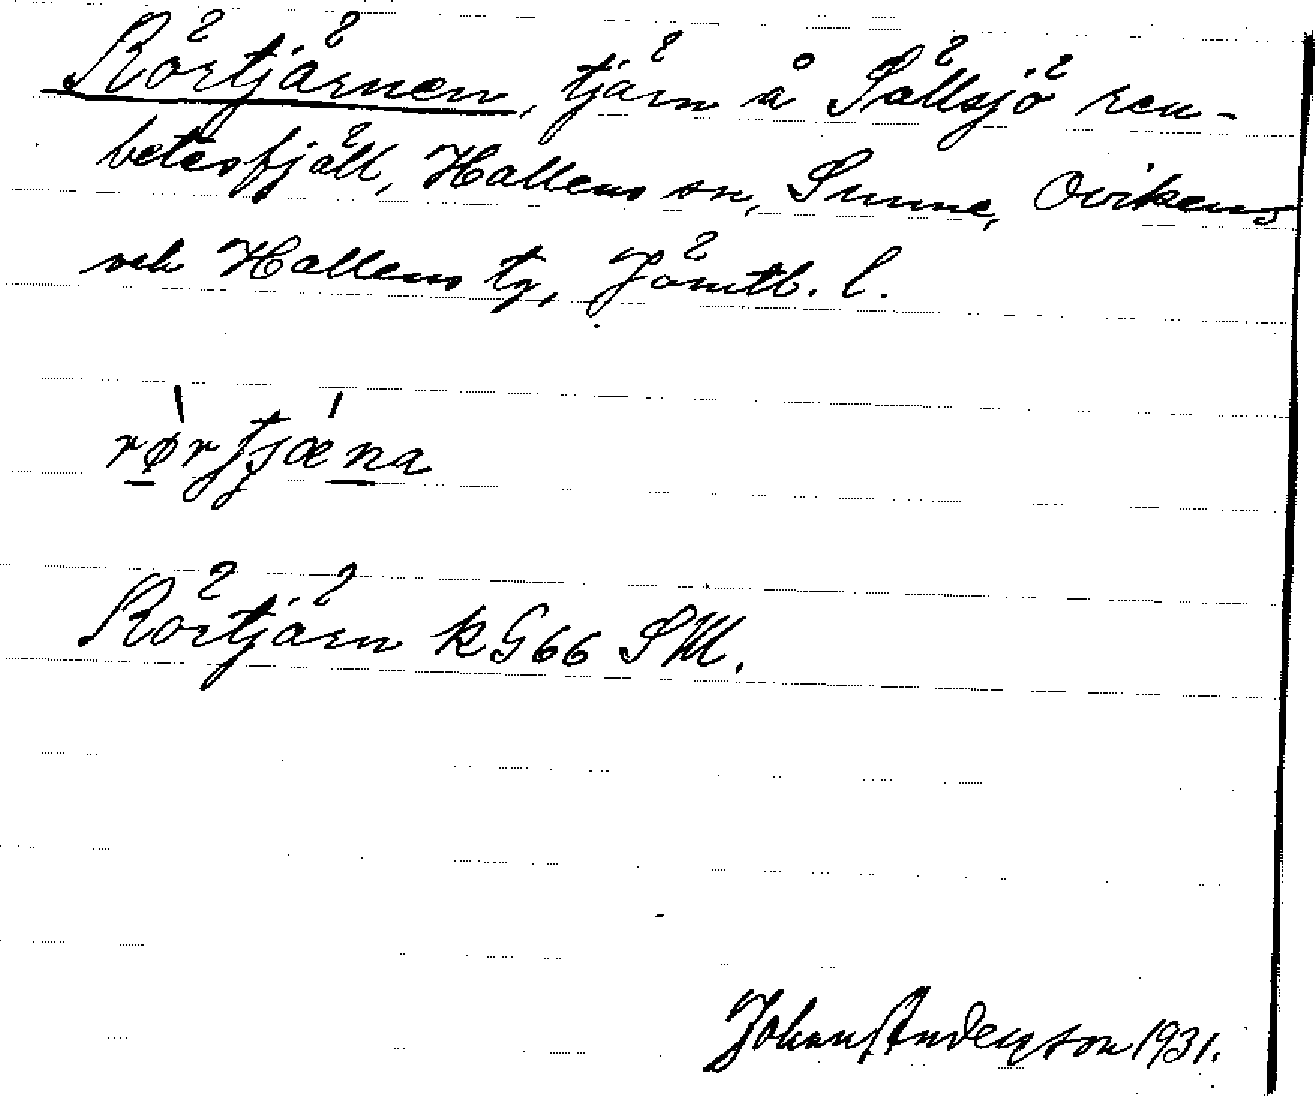 Rörtjärnen, tjärn å Sällsjö ren-
betesfjäll, Hallens sn, Sunne, Ovikens
och Hallens tg, Jämtb. l.
Rörtjärn k G66 SM.
John Anderson 1931.